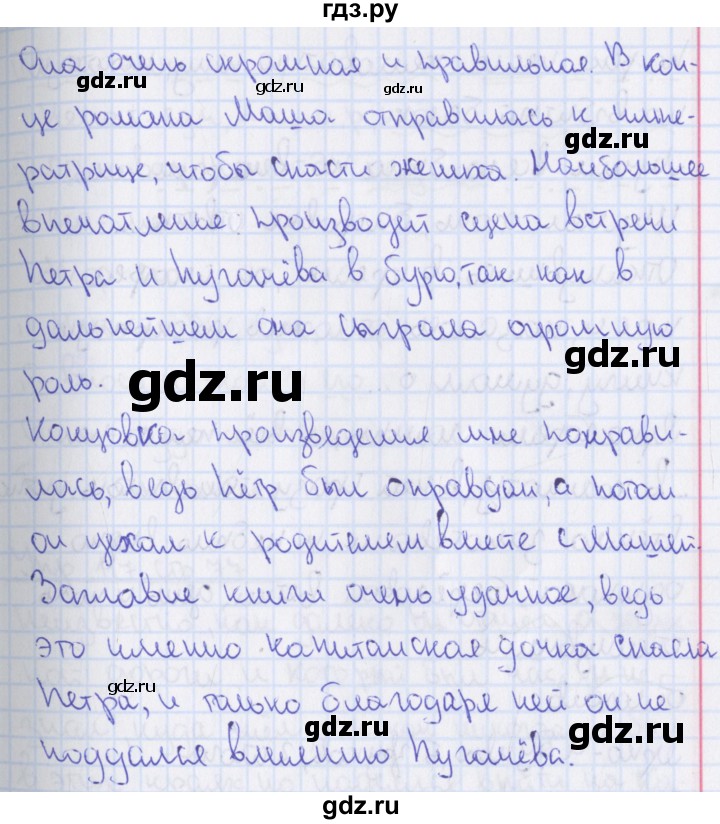 гдз.ру
Она очень скромная и правильная. В кон-
це романа Маша отправилась к импе-
ратрице, чтобы спасти жениха. Наибольшее
впечатление производет сцена встречи
Петра и Пугачёва в бурю, так как в
дальнейшем она сыграла огромную
роль.
Концовка произведения мне понрави-
лась, ведь Пётр был оправдан, а потом
он уехал к родителем вместе с Машей.
Заглавие книги очень удачное, ведь
это именно капитанская дочка спасла
Петра, и только благодаря ней он не
поддался влиянию Пугачёва.
gdz.ru
gdz.ru
gdz.ru
gdz.ru
gdz.ru
gdz.ru
gdz.ru
gdz.ru
gdz.ru
gdz.ru
gdz.ru
gdz.ru